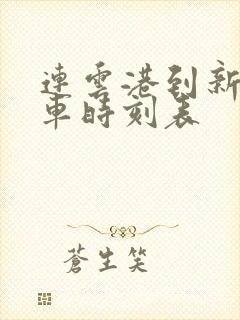 連雲港到新
車時刻表
蒼生笑